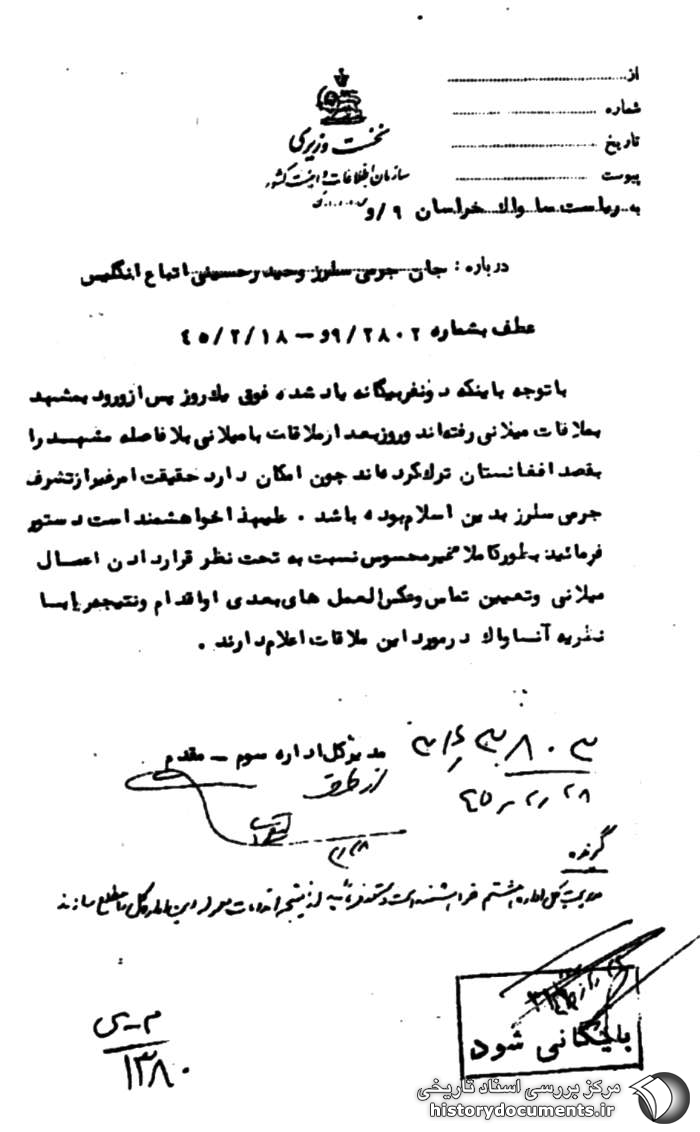 از
شماره
تاریخ
پیوست
نخست وزیری
سازمان اطلاعات و امنیت کشور
به ریاست ساواک خراسان ۹/و
درباره: جان جرمی سلرز وحیدرحسینی اتباع انگلیس
عطف بشماره ۲۸۰۲/۹و – ۴۵/۲/۱۸
باتوجه باینکه دونفربیگانه یاد شده فوق یکروز پس ازورود بمشهد
بملاقات میلانی رفته‌اند وروزبعد ازملاقات بامیلانی بلافاصله مشهد را
بقصد افغانستان ترک‌کرده‌اند چون امکان دارد حقیقت امرغیرازتشرف
جرمی سلرز بدین اسلام‌بوده باشد . علیهذاخواهشمند است دستور
فرمائید بطورکاملا غیرمحسوس نسبت به تحت نظر قراردادن اعمال
میلانی وتعیین تماس وعکس‌العمل های‌بعدی اواقدام ونتیجه‌رابا
نظریه آنساواک درمورد این ملاقات اعلام‌دارند .
مدیرکل‌اداره سوم – مقدم
از طرف
۳۱۶/ ۳۸۰۳
۴۵/۲/۲۸
۲/۲۸
گیرنده
مدیریت کل اداره هشتم خواهشمند است دستور فرمائید از نتیجه اقدامات معموله این اداره کل را مطلع سازند
م-ی
۱۳۸۰
بایگانی شود
مرکز بررسی اسناد تاریخی
historydocuments.ir